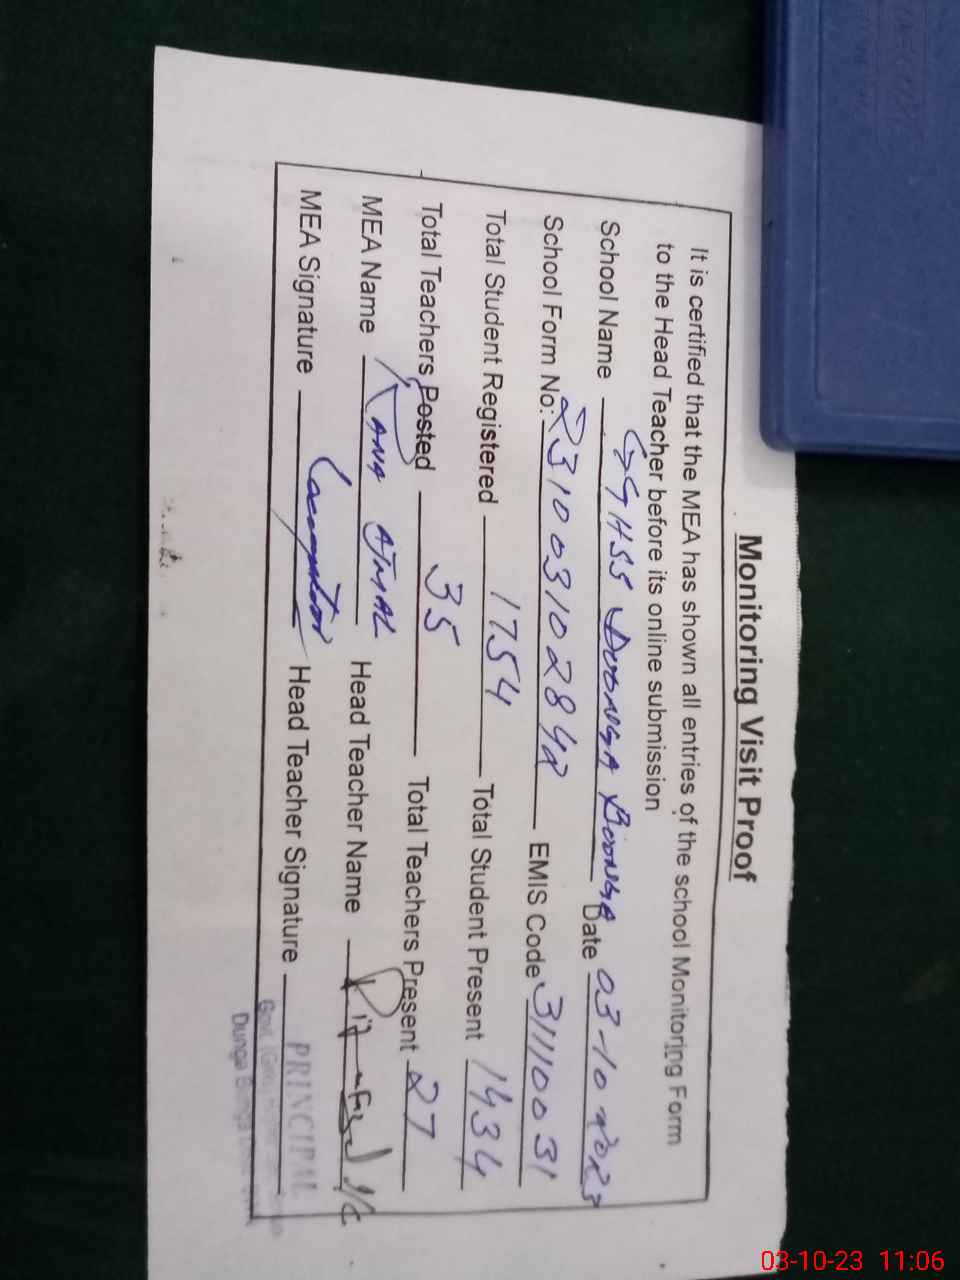 Monitoring Visit Proof
It is certified that the MEA has shown all entries of the school Monitoring Form
to the Head Teacher before its online submission
School Name GGHSS DOONGA BOONGA Date 03-10-2023
School Form No: 231003102842 EMIS Code 31110031
Total Student Registered 1754 Total Student Present 1434
Total Teachers Posted 35 Total Teachers Present 27
MEA Name RANA AJMAL Head Teacher Name I/C
MEA Signature Head Teacher Signature
PRINCIPAL
Dunga Bunga
03-10-23 11:06